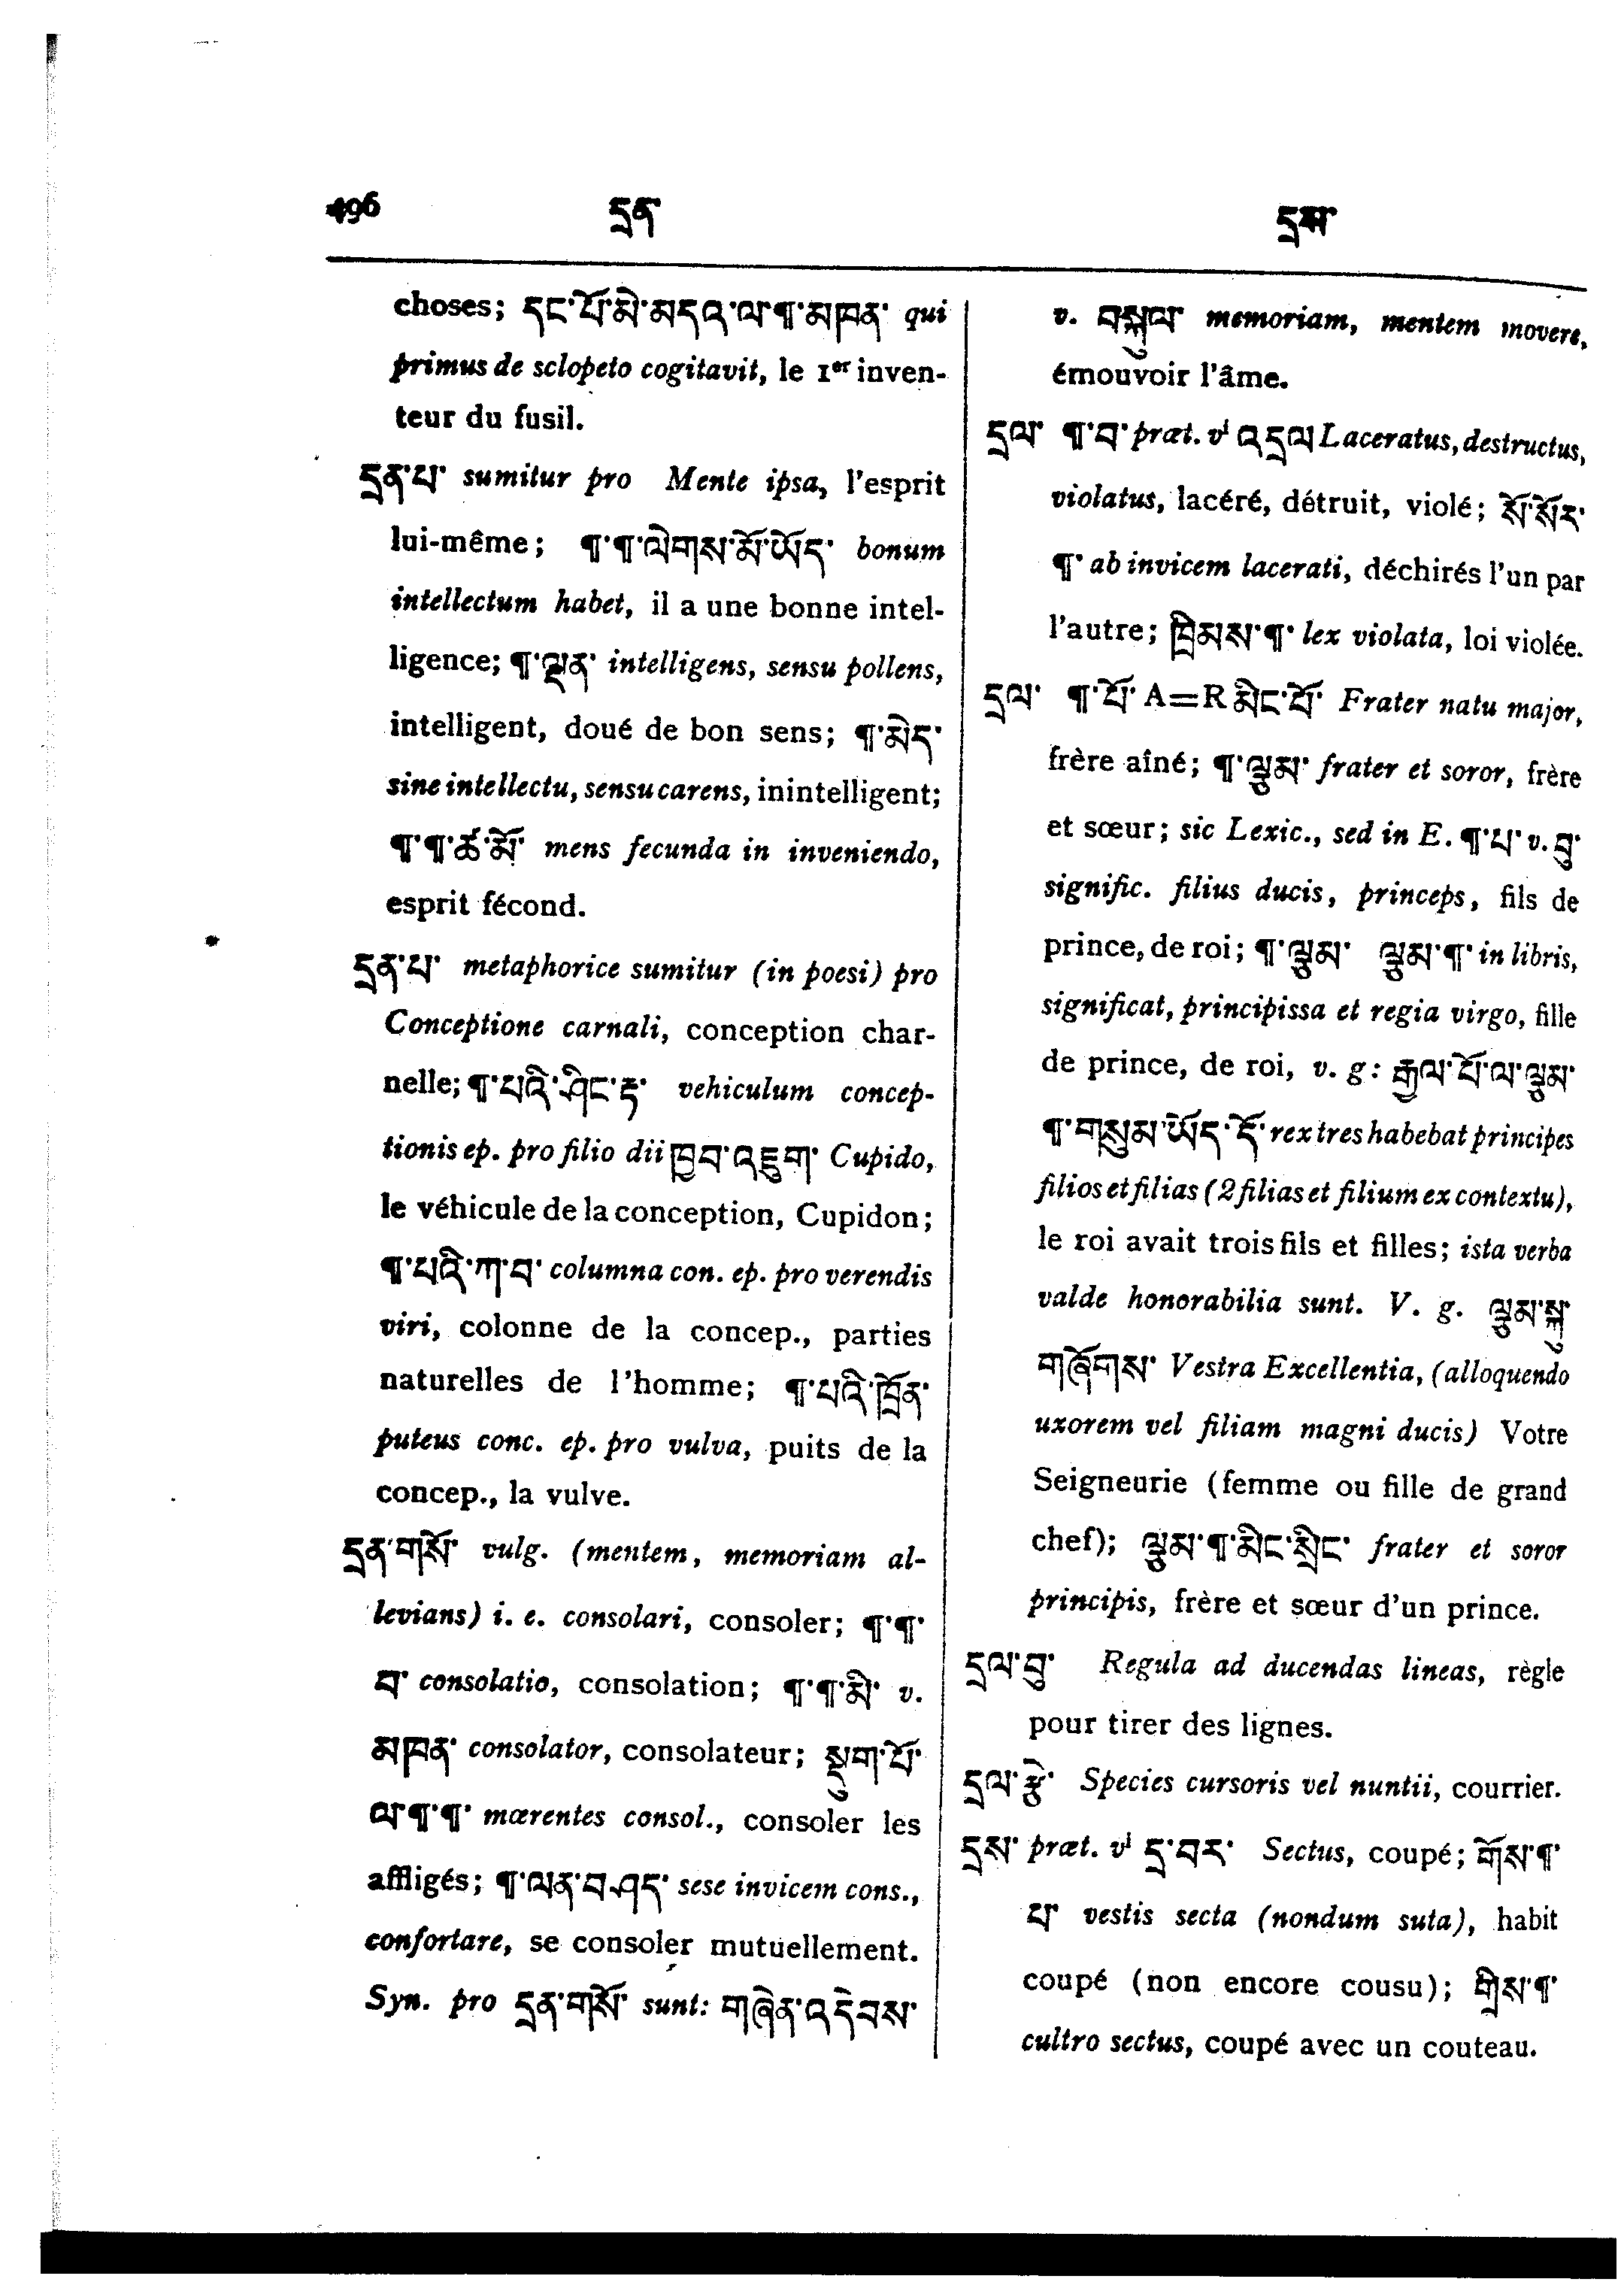 496
དྲན་
དྲས་
choses; དང་པོ་མེ་མདའ་ལ་¶་མཁན་ qui
primus de sclopeto cogitavit, le 1er inven-
teur du fusil.
དྲན་པ་ sumitur pro Mente ipsa, l'esprit
lui-même; ¶་¶་ལེགས་མོ་ཡོད་ bonum
intellectum habet, il a une bonne intel-
ligence; ¶་ལྡན་ intelligens, sensu pollens,
intelligent, doué de bon sens; ¶་མེད་
sine intellectu, sensu carens, inintelligent;
¶་¶་ཚ་མོ་ mens fecunda in inveniendo,
esprit fécond.
དྲན་པ་ metaphorice sumitur (in poesi) pro
Conceptione carnali, conception char-
nelle; ¶་པའི་ཤིང་རྟ་ vehiculum concep-
tionis ep. pro filio dii ཁྱབ་འཇུག་ Cupido,
le véhicule de la conception, Cupidon;
¶་པའི་ཀ་བ་ columna con. ep. pro verendis
viri, colonne de la concep., parties
naturelles de l'homme; ¶་པའི་ཁྲོན་
puteus conc. ep. pro vulva, puits de la
concep., la vulve.
དྲན་གསོ་ vulg. (mentem, memoriam al-
levians) i. e. consolari, consoler; ¶་¶་
བ་ consolatio, consolation; ¶་¶་མི་ v.
མཁན་ consolator, consolateur; སྡུག་པོ་
ལ་¶་¶་ mœrentes consol., consoler les
affligés; ¶་ལན་བཤད་ sese invicem cons.,
confortare, se consoler mutuellement.
Syn. pro དྲན་གསོ་ sunt: གཞེན་འདེབས་
v. བསྐུལ་ memoriam, mentem movere,
émouvoir l'âme.
དྲལ་ ¶་བ་ præt. vi འདྲལ Laceratus, destructus,
violatus, lacéré, détruit, violé; སོ་སོར་
¶་ ab invicem lacerati, déchirés l'un par
l'autre; ཁྲིམས་¶་ lex violata, loi violée.
དྲལ་ ¶་པོ་ A=R མིང་པོ་ Frater natu major,
frère aîné; ¶་ལྕམ་ frater et soror, frère
et sœur; sic Lexic., sed in E. ¶་པ་ v. བུ་
signific. filius ducis, princeps, fils de
prince, de roi; ¶་ལྕམ་ ལྕམ་¶་ in libris,
significat, principissa et regia virgo, fille
de prince, de roi, v. g: རྒྱལ་པོ་ལ་ལྕམ་
¶་གསུམ་ཡོད་དོ་ rex tres habebat principes
filios et filias (2 filias et filium ex contextu),
le roi avait trois fils et filles; ista verba
valde honorabilia sunt. V. g. ལྕམ་སྐུ་
གཞོགས་ Vestra Excellentia, (alloquendo
uxorem vel filiam magni ducis) Votre
Seigneurie (femme ou fille de grand
chef); ལྕམ་¶་མིང་སྲིང་ frater et soror
principis, frère et sœur d'un prince.
དྲལ་བུ་ Regula ad ducendas lineas, règle
pour tirer des lignes.
དྲལ་རྩེ་ Species cursoris vel nuntii, courrier.
དྲས་ præt. vi དྲ་བར་ Sectus, coupé; གོས་¶་
པ་ vestis secta (nondum suta), habit
coupé (non encore cousu); གྲིས་¶་
cultro sectus, coupé avec un couteau.